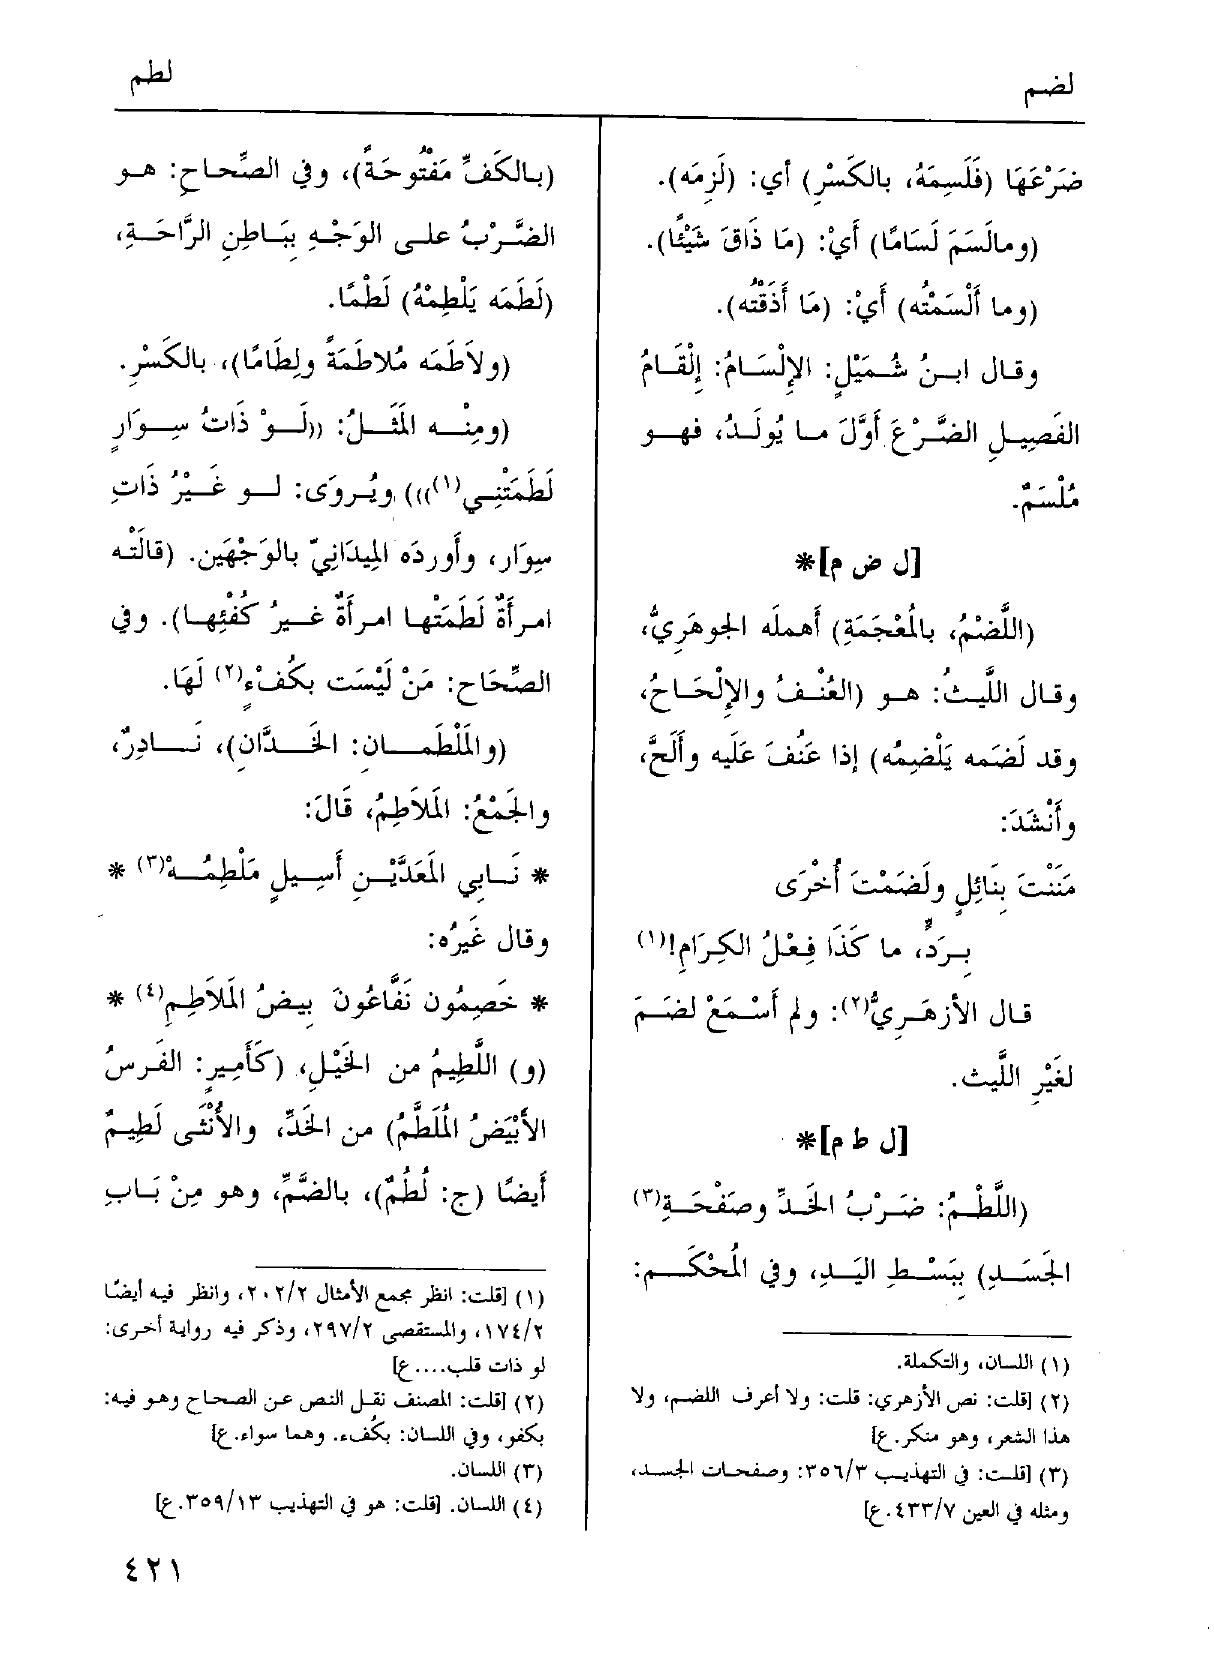 لضم
لطم
ضَرْعَهَا (فَلَسِمَهُ، بالكَسْرِ) أي: (لَزِمَه).
(ومالَسَمَ لَسَامًا) أَيْ: (مَا ذَاقَ شَيْئًا).
(وما أَلْسَمْتُه) أَيْ: (مَا أَذَقْتُه).
وقال ابنُ شُمَيْلٍ: الإِلْسَامُ: إِلْقَامُ
الفَصِيلِ الضَّرْعَ أَوَّلَ ما يُولَدُ، فهو
مُلْسَمٌ.
[ل ض م]*
(اللَّضْمُ، بالمُعْجَمَةِ) أهمله الجوهَرِيُّ،
وقال اللَّيثُ: هو (العُنْفُ والإِلْحَاحُ،
وقد لَضَمَه يَلْضِمُه) إذا عَنُفَ عَلَيه وأَلَحَّ،
وأَنْشَدَ:
مَنَنْتَ بِنَائِلٍ ولَضَمْتَ أُخْرَى
بِرَدٍّ، ما كَذَا فِعْلُ الكِرَامِ!(١)
قال الأزهَرِيُّ(٢): ولم أَسْمَعْ لضَمَ
لغَيْرِ اللَّيث.
[ل ط م]*
(اللَّطْمُ: ضَرْبُ الخَدِّ وصَفْحَةِ(٣)
الجَسَدِ) بِبَسْطِ اليَدِ، وفي المُحْكَمِ:
(١) اللسان، والتكملة.
(٢) [قلت: نص الأزهري: قلت: ولا أعرف اللضم، ولا
هذا الشعر، وهو منكر.ع]
(٣) [قلت: في التهذيب ٣٥٦/٣: وصفحات الجسد،
ومثله في العين ٤٣٣/٧.ع]
(بالكَفِّ مَفْتُوحَةً)، وفي الصِّحاحِ: هو
الضَّرْبُ على الوَجْهِ بِبَاطِنِ الرَّاحَةِ،
(لَطَمَه يَلْطِمُهُ) لَطْمًا.
(ولاَطَمَه مُلاطَمَةً ولِطَامًا)، بالكَسْرِ.
(ومِنْه المَثَلُ: ((لَوْ ذَاتُ سِوَارٍ
لَطَمَتْنِي(١))) ويُروَى: لو غَيْرُ ذَاتِ
سِوَار، وأوردَه المِيدَانِيّ بالوَجْهَين. (قالَتْه
امرأَةٌ لَطَمَتْها امرأَةٌ غيرُ كُفْئِها). وفي
الصِّحَاح: مَنْ لَيْسَت بِكُفْءٍ(٢) لَهَا.
(والمَلْطِمَانِ: الخَدَّانِ)، نَادِرٌ،
والجَمْعُ: المَلاَطِمُ، قَالَ:
* نَابِي المَعَدَّيْنِ أَسِيلٍ مَلْطِمُهْ(٣) *
وقال غَيرُه:
* خَصِمُون نَفَّاعُونَ بِيضُ المَلاَطِمِ(٤) *
(و) اللَّطِيمُ من الخَيْلِ، (كَأَمِيرٍ: الفَرسُ
الأَبْيَضُ المُلَطَّمُ) من الخَدِّ، والأُنْثَى لَطِيمٌ
أيضًا (ج: لُطُمٌ)، بالضَّمِّ، وهو مِنْ بَابِ
(١) [قلت: انظر مجمع الأمثال ٢٠٢/٢، وانظر فيه أيضًا
١٧٤/٢، والمستقصى ٢٩٧/٢، وذكر فيه رواية أخرى:
لو ذات قلب....ع]
(٢) [قلت: المصنف نقل النص عن الصحاح وهو فيه:
بكفو، وفي اللسان: بكُفء. وهما سواء.ع]
(٣) اللسان.
(٤) اللسان. [قلت: هو في التهذيب ٣٥٩/١٣.ع]
٤٢١